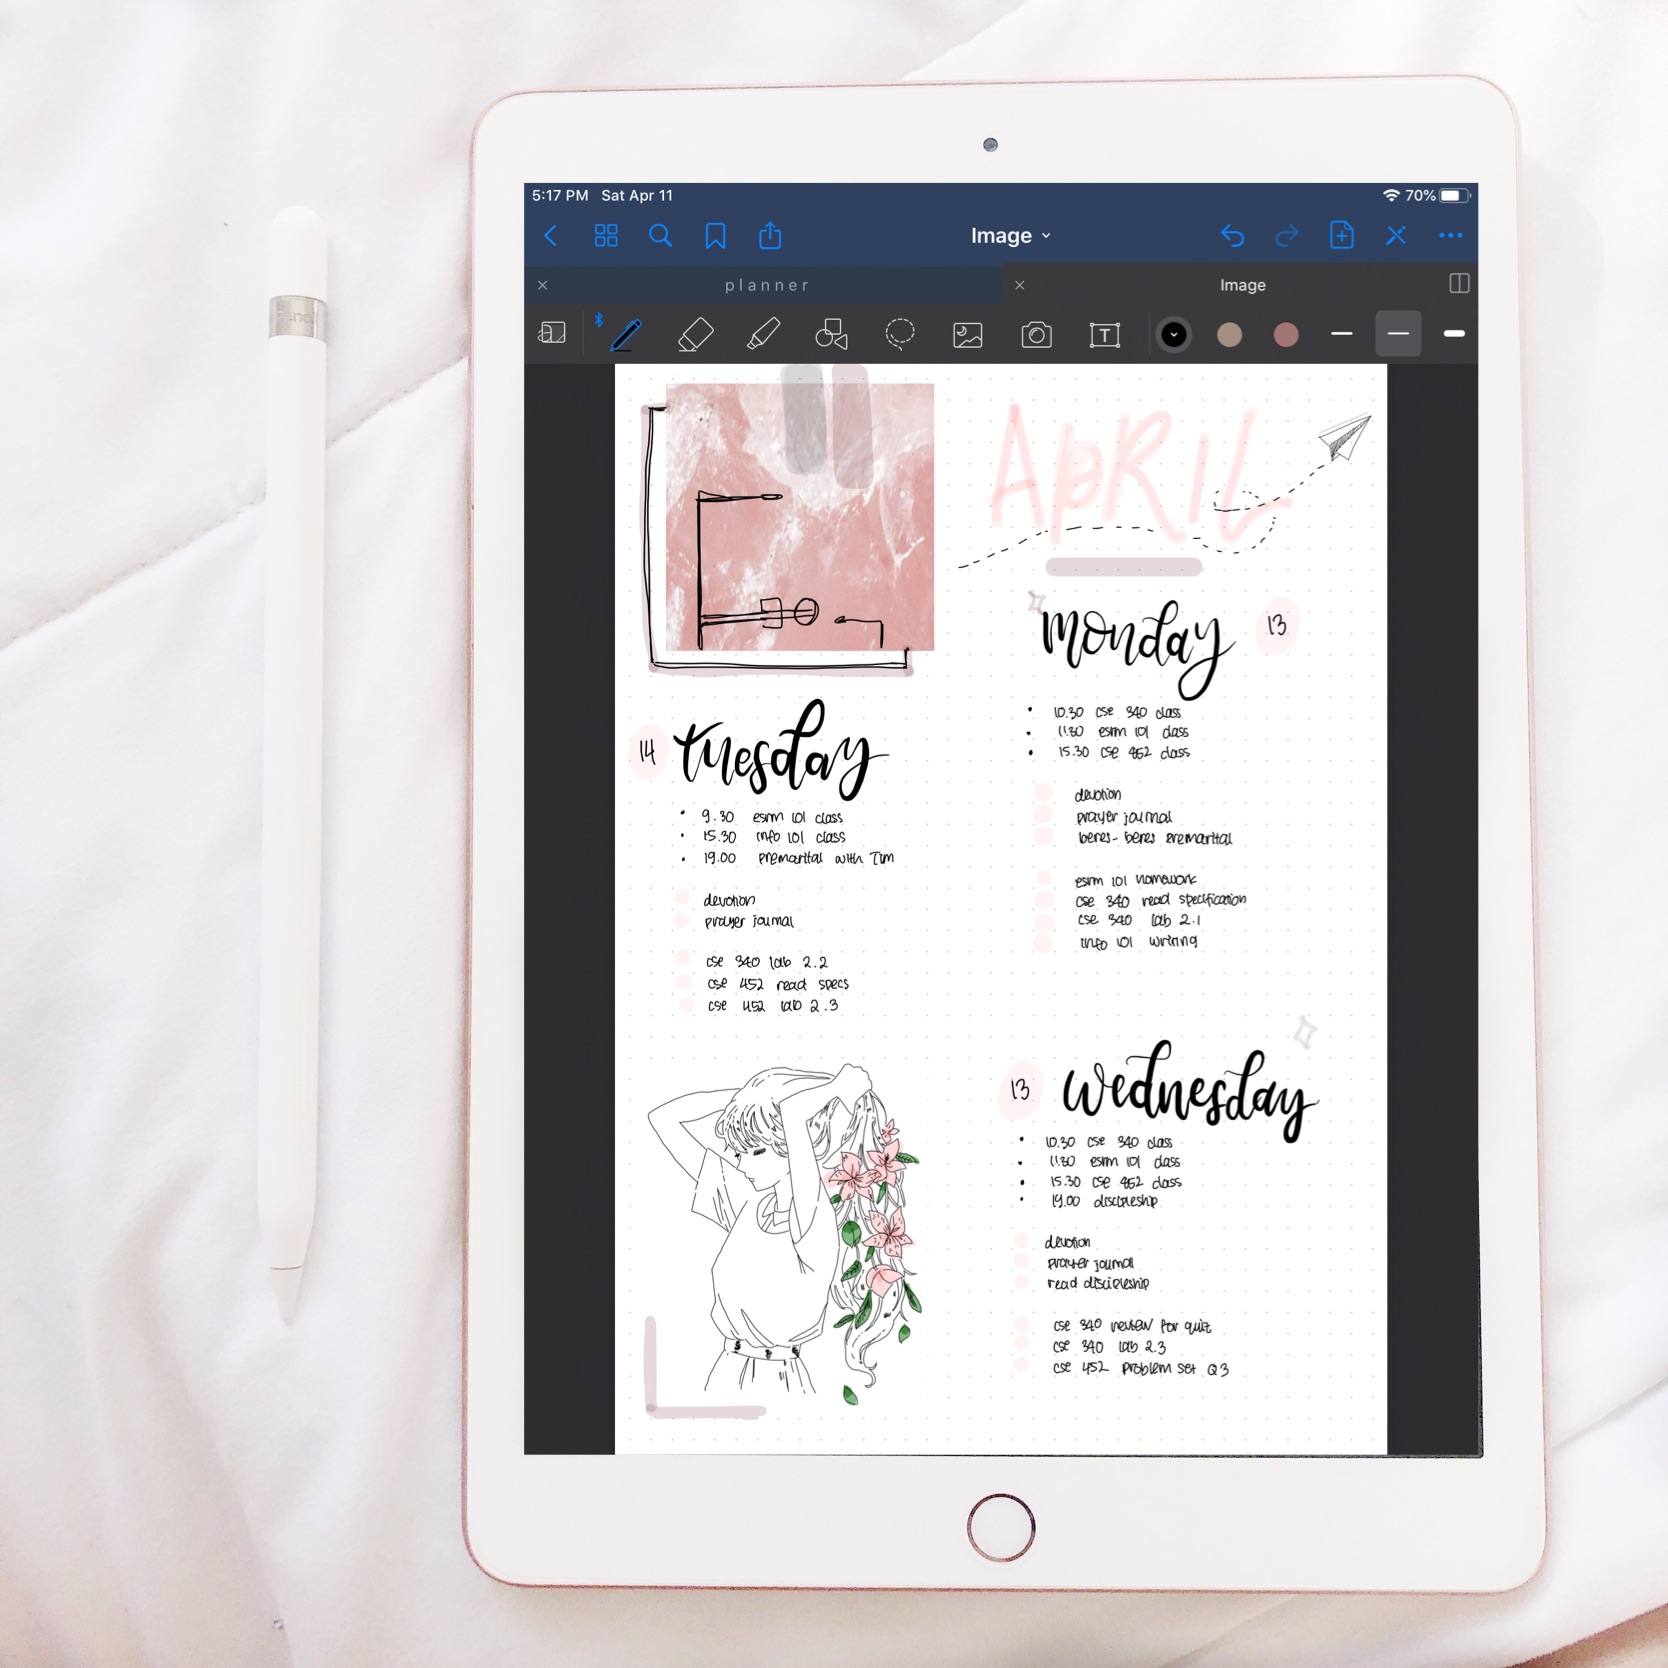 5:17 PM Sat Apr 11
70%
Image
planner
Image
T
APRIL
monday
13
• 10.30 cse 340 class
• 11.30 esrm 101 class
• 15.30 cse 452 class
devotion
prayer journal
beres-beres premarital
esrm 101 homework
cse 340 read specification
cse 340 lab 2.1
info 101 writing
14
tuesday
• 9.30 esrm 101 class
• 15.30 info 101 class
• 19.00 premarital with Tim
devotion
prayer journal
cse 340 lab 2.2
cse 452 read specs
cse 452 lab 2.3
13
wednesday
• 10.30 cse 340 class
• 11.30 esrm 101 class
• 15.30 cse 452 class
• 19.00 discipleship
devotion
prayer journal
read discipleship
cse 340 review for quiz
cse 340 lab 2.3
cse 452 problem set Q3